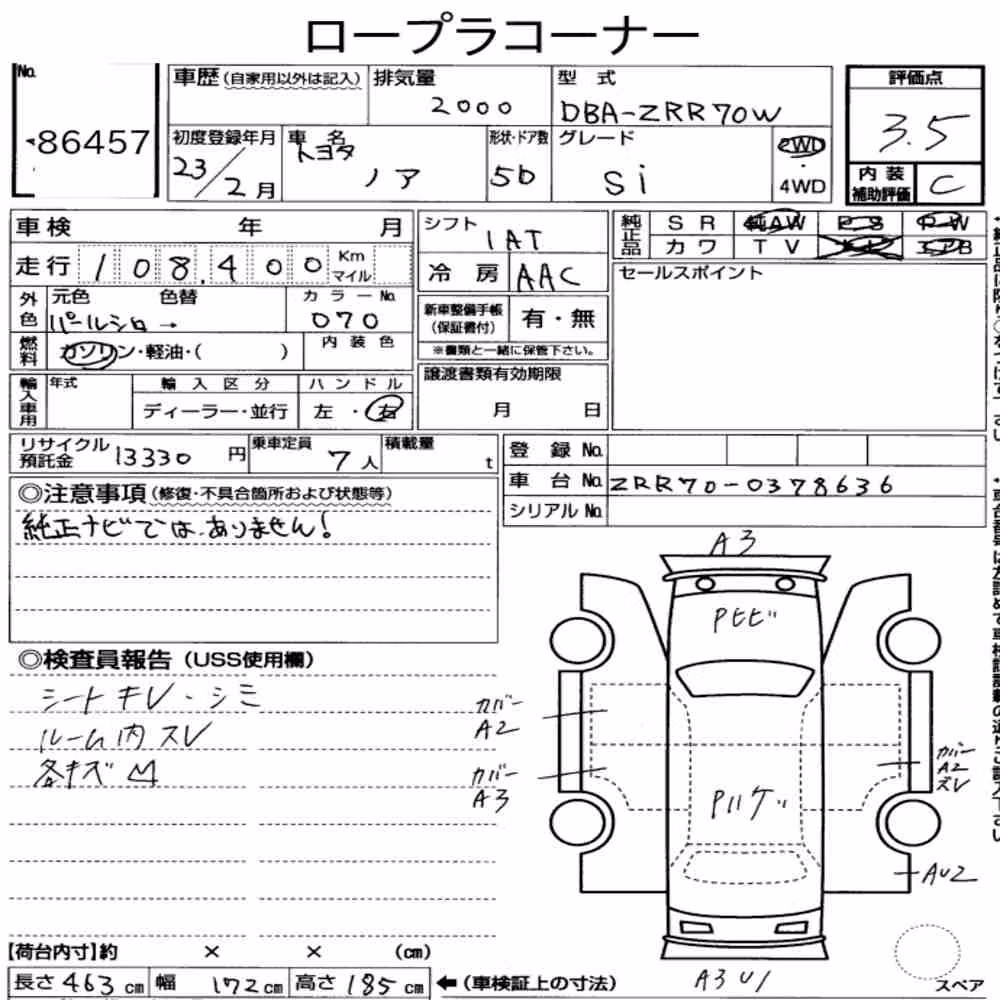 ロープラコーナー
No.
86457
車歴(自家用以外は記入)
排気量
2000
型 式
DBA-ZRR70W
評価点
3.5
内装
補助評価
C
初度登録年月
23/2月
車 名
トヨタ
ノア
形状・ドア数
5D
グレード
Si
2WD
・
4WD
車検 年 月
走行 108,400 Km
マイル
シフト
IAT
冷 房
AAC
純正品
SR 純AW PS PW
カワ TV
セールスポイント
外色
元色 色替
パールシロ→
カラーNo.
070
新車整備手帳
(保証書付)
有・無
※書類と一緒に保管下さい。
燃料
ガソリン・軽油・( )
内装色
譲渡書類有効期限
月 日
輸入車用
年式
輸入区分
ディーラー・並行
ハンドル
左・右
リサイクル
預託金
13330円
乗車定員
7人
積載量
t
登 録 No.
車 台 No. ZRR70-0378636
シリアル No.
◎注意事項(修復・不具合箇所および状態等)
純正ナビではありません!
◎検査員報告(USS使用欄)
シートキレ・シミ
ルーム内スレ
各キズ凹
A3
Pヒビ
カバー
A2
カバー
A3
Pハゲ
カバー
A2
ズレ
AU2
A3U1
スペア
【荷台内寸】約 × × (cm)
長さ 463 cm 幅 172 cm 高さ 185 cm
←(車検証上の寸法)